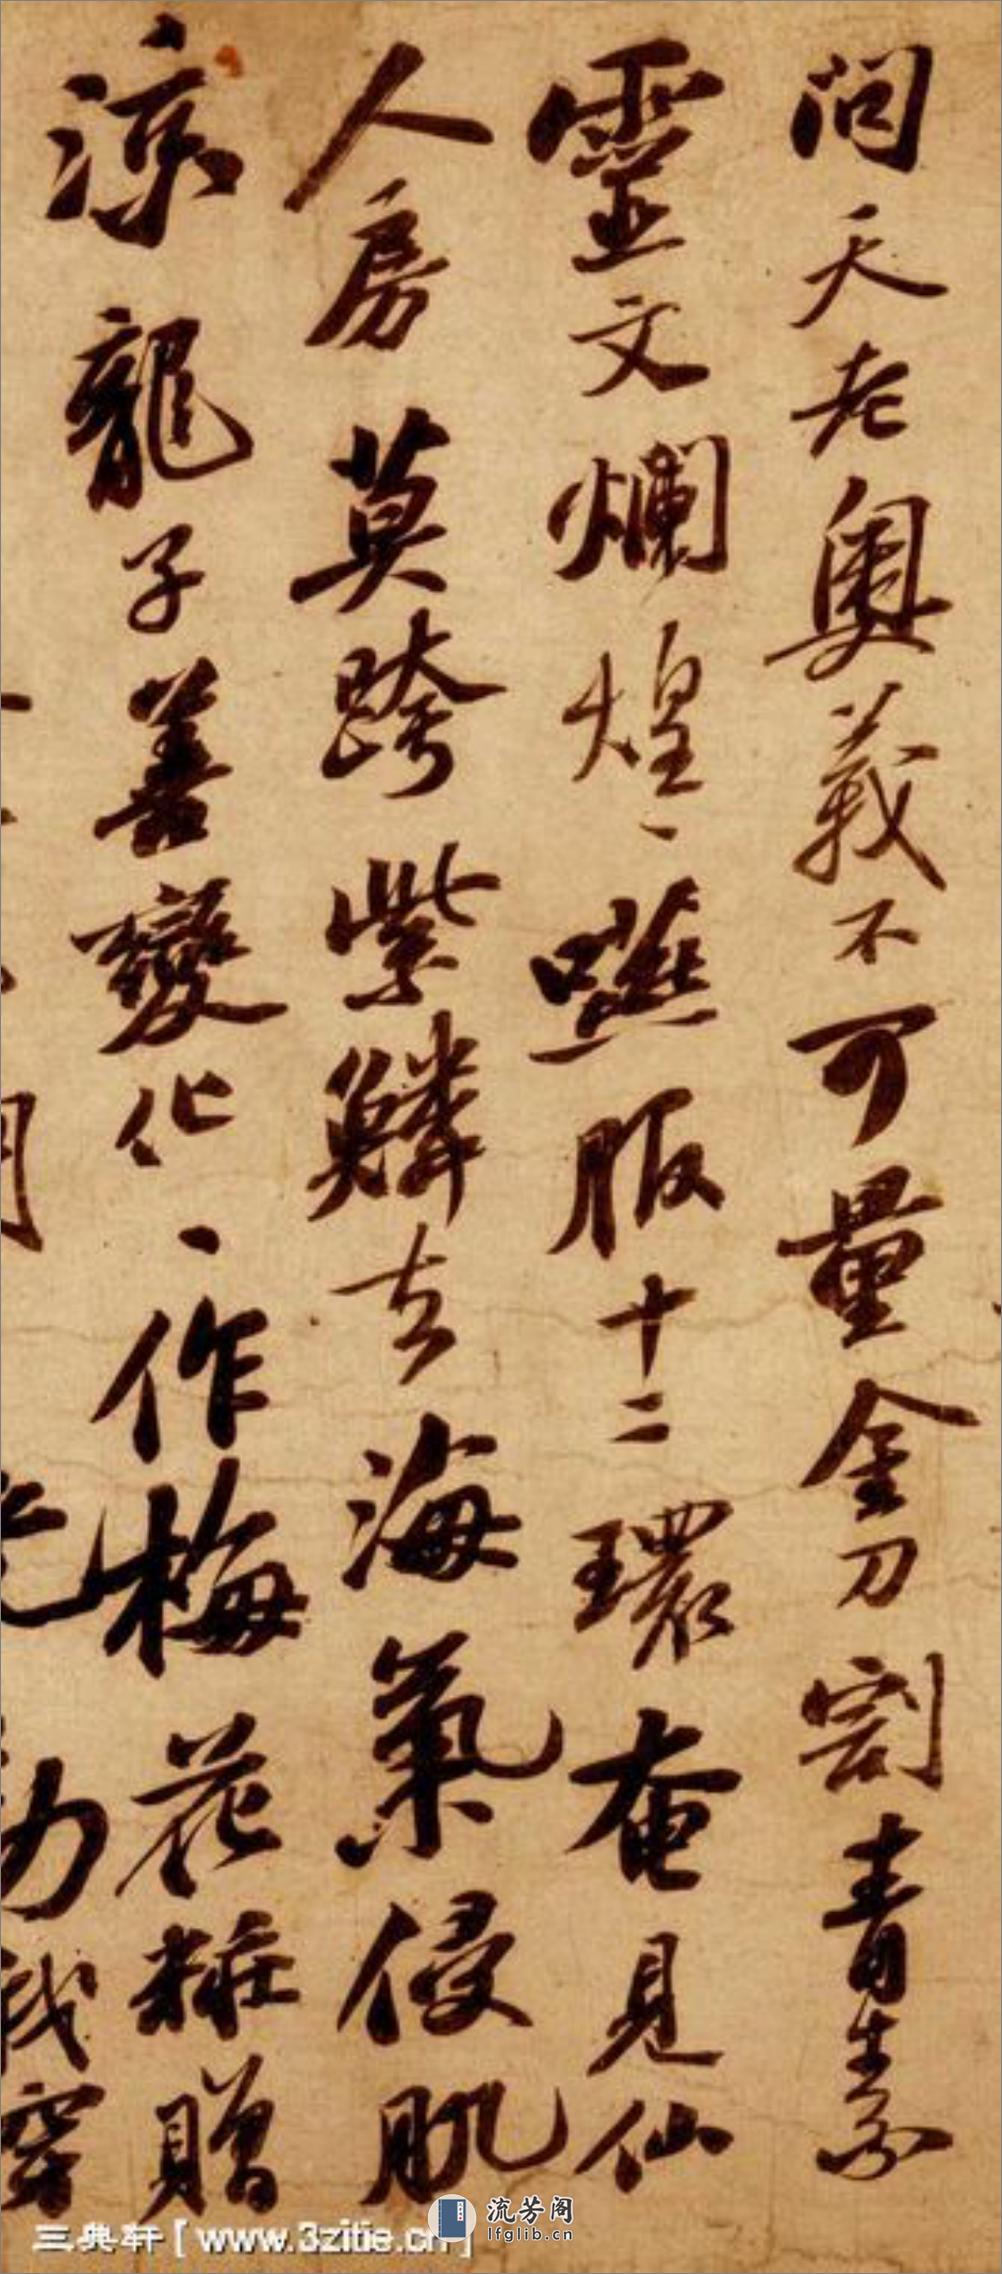 问天老奥義不可量金刀割青素
靈文爛煌煌嚥服十二環奄見仙
人房莫跨紫鱗去海氣侵肌
涼龍子善變化化作梅花粧贈
三典轩[www.3zitie.cn]
流芳阁
lfglib.cn